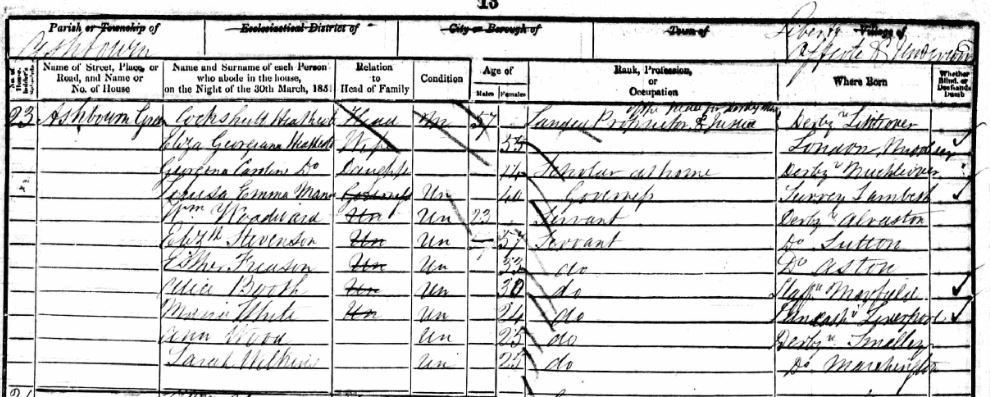 13
Parish or Township of Ecclesiastical District of City or Borough of Town of Village of
Liberty
Offcote & Underwood
No. of House- holder's Schedule Name of Street, Place, or Road, and Name or No. of House Name and Surname of each Person who abode in the house, on the Night of the 30th March, 1851 Relation to Head of Family Condition Age of Males Females Rank, Profession, or Occupation Where Born Whether Blind, or Deaf-and-Dumb
23 Ashbourn Head Un 57 Landed Proprietor & Justice Derby
of the Peace for
Eliza Georgiana Wife 55 London
Georgena Caroline Do 14 Scholar at home Derby Mickleover
Louisa Emma Governess Un 40 Governess Surrey Lambeth
Wm Woodward Un Un 23 Servant Derby Alvaston
Elizth Stevenson Un Un 57 Servant Do Sutton
Esther Un Un 53 do Do Aston
Alice Booth Un Un 30 do Staff Mayfield
Maria White Un Un 24 do Lancash Liverpool
Ann Wood Un 25 do Derby Smalley
Sarah Un 25 do Do Marchington